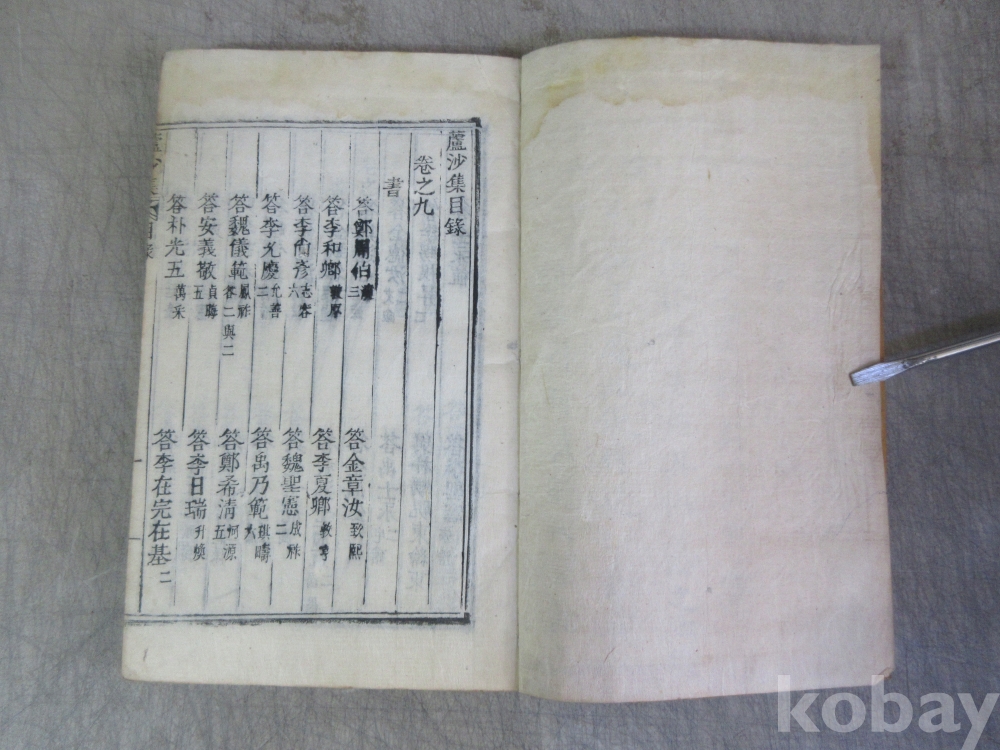 蘆沙集目錄
卷之九
書
答鄭周伯 三
答金章汝 致熙
答李和鄉 敦厚
答李夏鄉 教
答李尙彦 志容 六
答魏聖憲 成祚 二
答李允慶 允善 二
答禹乃範 祺疇 六
答魏儀範 鳳祚 答二與二
答鄭希淸 河源 五
答安義敬 貞晦 五
答李日瑞 升煥
答朴光五 萬采
答李在完在基 二
kobay